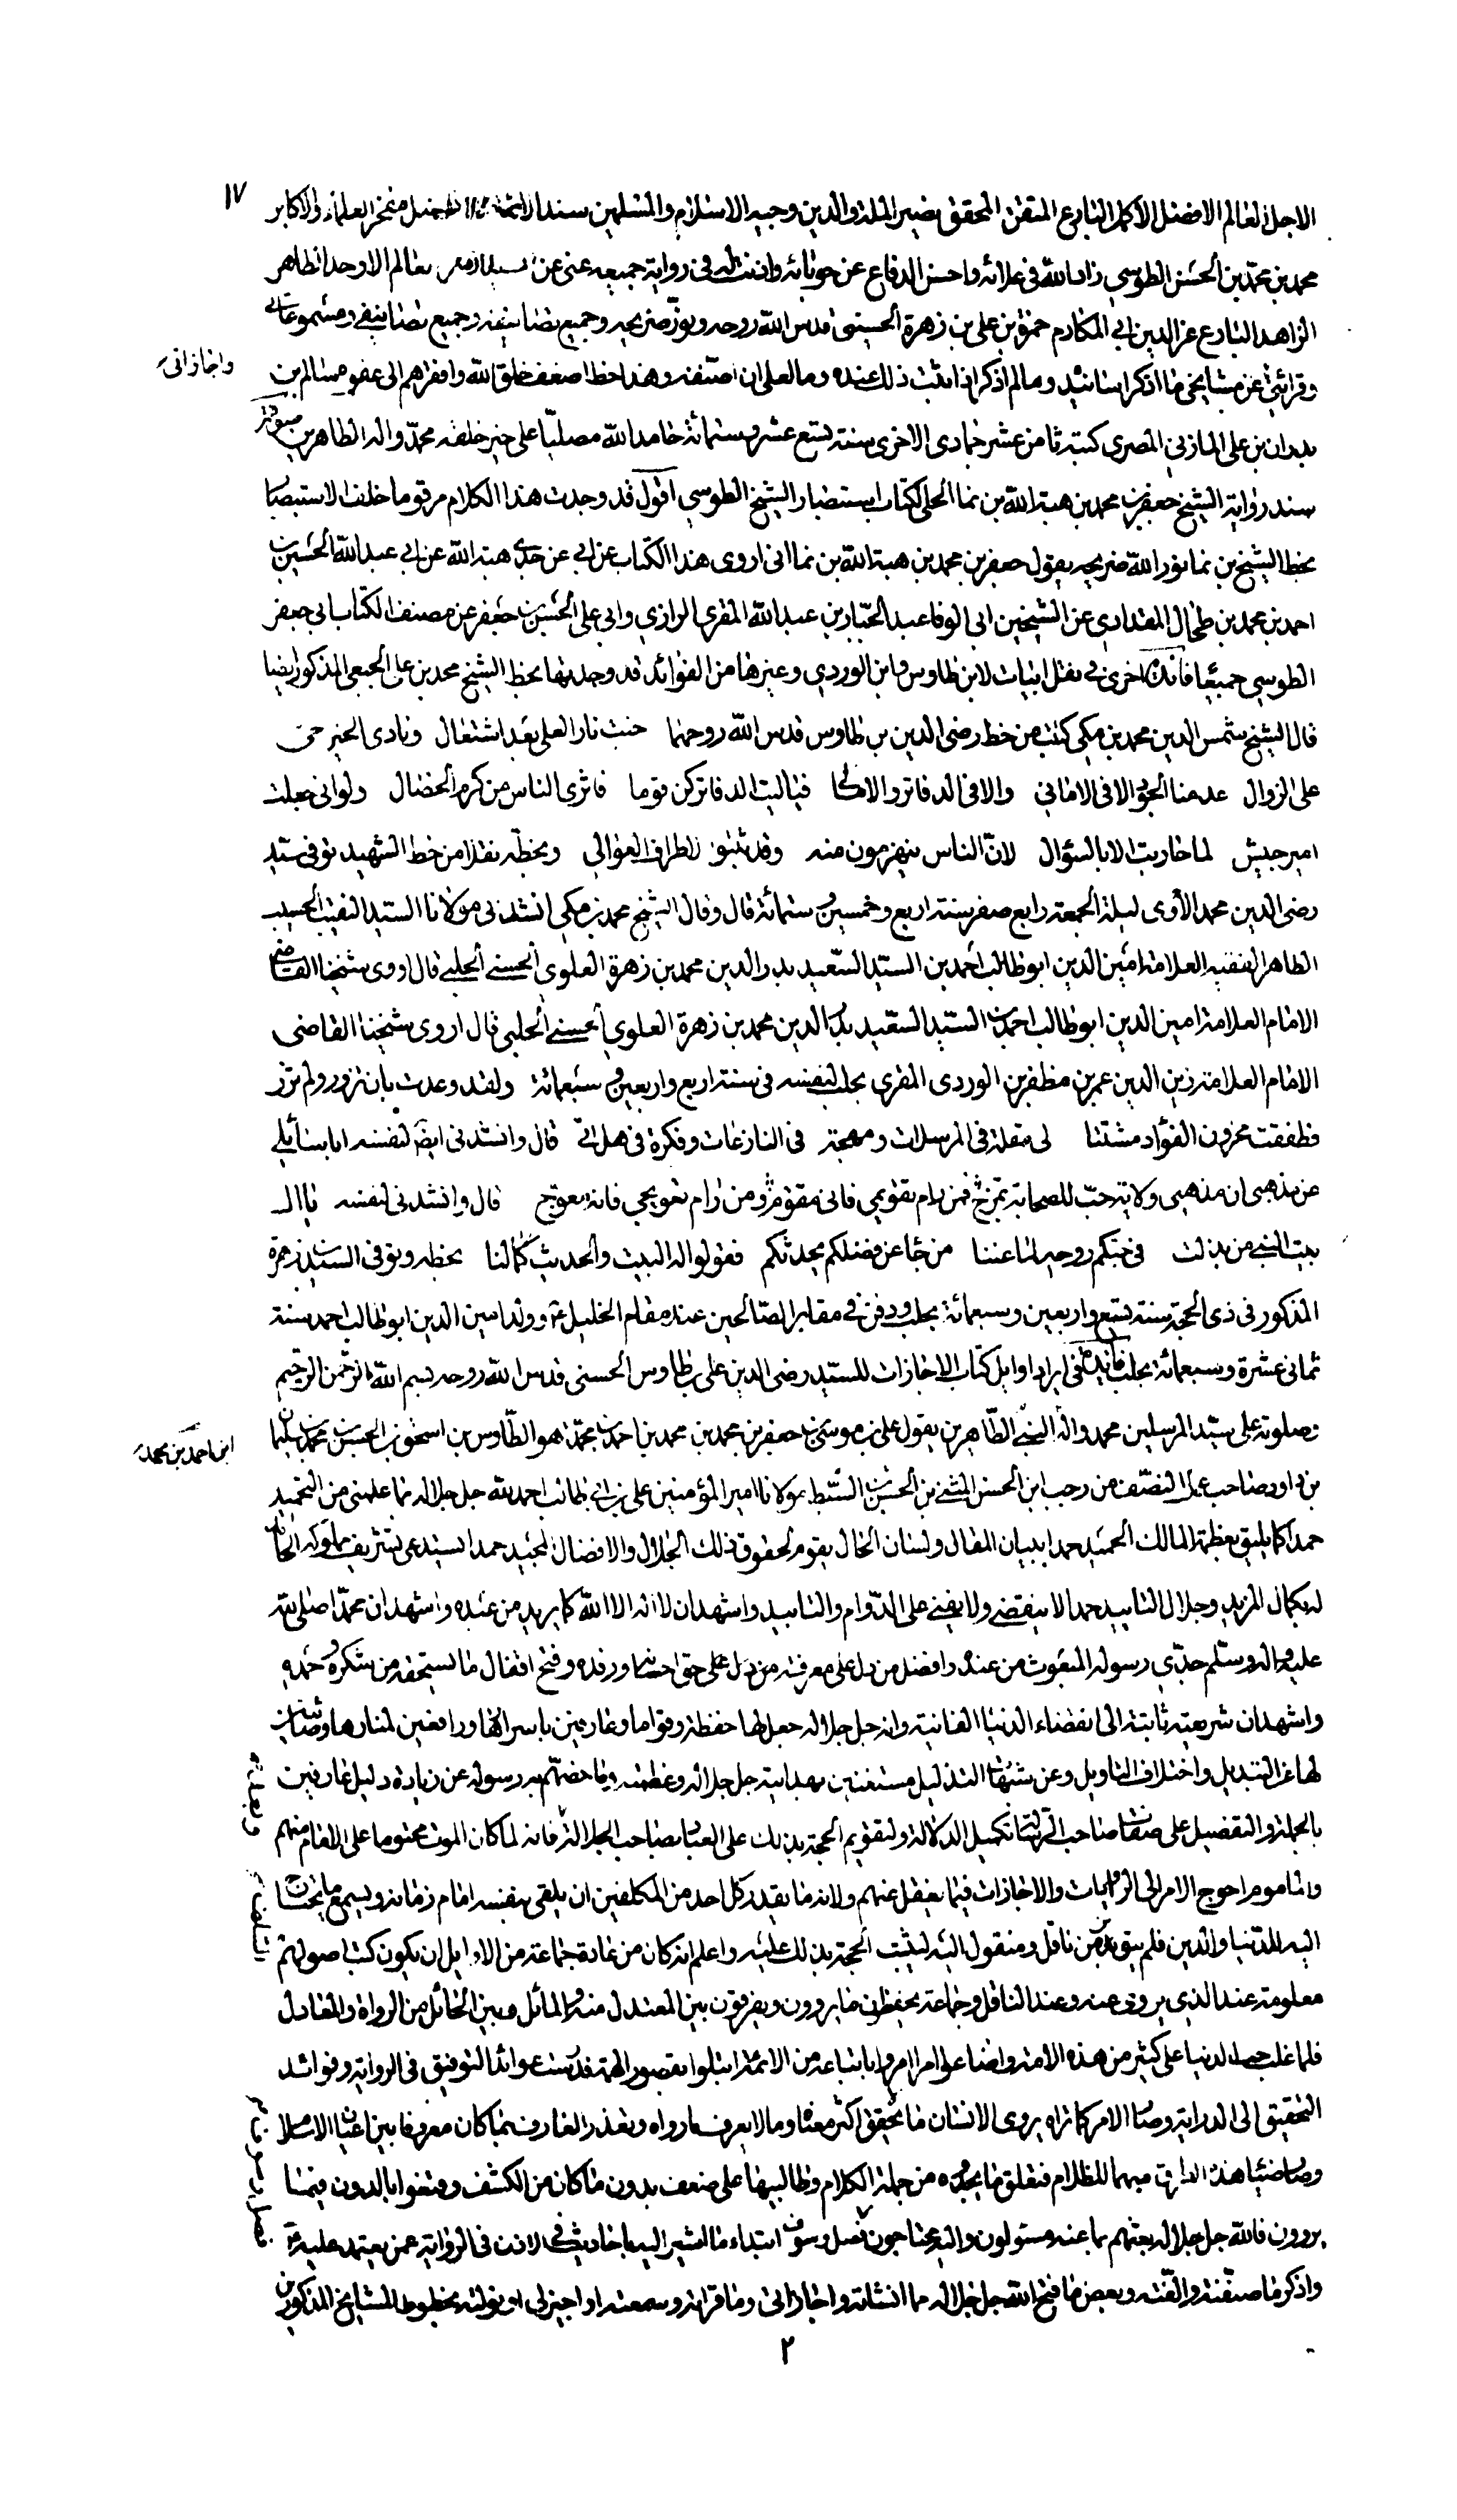 ١٧
الاجل العالم الافضل الاكمل البارع المتقن المحقق نصير الملة والدين وجيه الاسلام والمسلمين سند الائمة الافاضل مفخر العلماء والاكابر
محمد بن محمد بن الحسن الطوسي زاد الله في علائه واحسن الدفاع عن حوبائه واذنت له في رواية جميعه عني عن السيد العالم الاوحد الطاهر
الزاهد البارع عز الدين ابي المكارم حمزة بن علي بن زهرة الحسيني قدس الله روحه ونور ضريحه وجميع تصانيفه وجميع تصانيفي ومسموعاتي
وقرائتي عن مشايخي ما اذكر اسانيده وما لم اذكر اذا ثبت ذلك عنده وما لعلي ان اصنفه وهذا خط اضعف خلق الله وافقرهم الى عفوه سالم بن
واجازاتي
بدران بن علي المازني المصري كتبه ثامن عشر جمادى الاخرى سنة تسع عشر وستمائة حامدا لله مصليا على خير خلقه محمد واله الطاهرين صورة
سند رواية الشيخ جعفر بن محمد بن هبة الله بن نما الحلي لكتاب استبصار الشيخ الطوسي اقول قد وجدت هذا الكلام مرقوما خلف الاستبصار
بخط الشيخ بن نما نور الله ضريحه يقول جعفر بن محمد بن هبة الله بن نما اني اروي هذا الكتاب عن ابي عن جدي هبة الله عن ابي عبد الله الحسين بن
احمد بن محمد بن طحال المقدادي عن الشيخين ابي الوفا عبد الجبار بن عبد الله المقري الرازي وابي علي الحسن بن جعفر عن مصنف الكتاب ابي جعفر
الطوسي جميعا فائدة اخرى في نقل ابيات لابن طاوس وابن الوردي وغيرها من الفوائد قد وجدتها بخط الشيخ محمد بن علي الجبعي المذكور ايضا
قال الشيخ شمس الدين محمد بن مكي كتبت من خط رضي الدين بن طاوس قدس الله روحهما خبت نار العلى بعد اشتعال ونادى الخير حي
على الزوال عدمنا الجود الا في الاماني والا في الدفاتر والامالي فيا ليت الدفاتر كن قوما فاثرى الناس من كرم الخصال ولو اني جعلت
امير جيش لما حاربت الا بالسؤال لان الناس ينهزمون منه وقد ثبتوا لاطراف العوالي وبخطه نقلا من خط الشهيد توفي سيد
رضي الدين محمد الاوي ليلة الجمعة رابع صفر سنة اربع وخمسين وستمائة قال وقال الشيخ محمد بن مكي انشدني مولانا السيد النقيب الحسيب
الطاهر الفقيه العلامة امين الدين ابو طالب احمد بن السيد السعيد بدر الدين محمد بن زهرة العلوي الحسني الحلبي قال اروي شيخنا القاضي
الامام العلامة امين الدين ابو طالب احمد بن السيد السعيد بدر الدين محمد بن زهرة العلوي الحسني الحلبي قال اروى شيخنا القاضي
الامام العلامة زين الدين عمر بن مظفر بن الوردي المقري بحلب لنفسه في سنة اربع واربعين وسبعمائة ولقد وعدت بان تزور ولم تزر
فطفقت محزون الفؤاد مشتتا لي مقلة في المرسلات ومهجة في النازعات وفكرة في هل اتى قال وانشدني ايضا لنفسه ايا سائلي
عن مذهبي ان مذهبي ولاية حب للصحابة تمزج فمن رام تقويمي فاني مقوم ومن رام تعويجي فاني معوج قال وانشدني لنفسه يا ال
بيت النبي من بذلت في حبكم روحه لما غبنا من جا عن فضلكم يحدثكم فقولوا له البيت والحديث لنا بخطه وتوفي السيد بن زهرة
المذكور في ذي الحجة سنة تسع واربعين وسبعمائة بحلب ودفن في مقابر الصالحين عند مقام الخليل ع وولد امين الدين ابو طالب احمد سنة
ثماني عشرة وسبعمائة بحلب فائدة في ايراد اوايل كتاب الاجازات للسيد رضي الدين علي بن طاوس الحسني قدس الله روحه بسم الله الرحمن الرحيم
وصلوته على سيد المرسلين محمد واله النبي الطاهرين يقول علي بن موسى بن جعفر بن محمد بن محمد بن احمد بن محمد هو الطاوس بن اسحق بن الحسن بن محمد بن سليمان
ابن احمد بن محمد
بن داود صاحب عمل النصف من رجب ابن الحسن المثنى بن الحسن السبط بن مولانا امير المؤمنين علي بن ابي طالب احمد لله جل جلاله بما علمني من التحميد
حمدا كما يليق بعظمة المالك الحميد حمدا ببيان المقال ولسان الحال يقوم لحقوق ذلك الجلال والافضال المجيد حمدا يستدعي تشريف مملوكه الحامد
له بكمال المزيد وجلال التاييد حمدا لا ينقضي ولا يفنى على الدوام والتاييد واشهد ان لا اله الا الله كما يريد من عبده واشهد ان محمدا صلى الله
عليه واله وسلم جدي رسوله المبعوث من عنده وافضل من دل على معرفته من دل على حق احسانه ورفده وفتح اقفال ما يستحقه من شكره وحمده
واشهد ان شريعته ثابتة الى انقضاء الدنيا الفانية وانه جل جلاله جعل لها حفظة وقواما وعارفين باسرارها ورافعين لمنارها وصائنين
لها عن التبديل واختلاف التاويل وعن شبهات التذليل مستغنين بهداية جل جلاله وعظمته وما خصهم به رسوله عن زيادة دليل عارفين
بالجملة والتفصيل على صفات صاحب الرسالة تكميل الدلالة ولتقويم الحجة بذلك على العباد لصاحب الجلالة فانه لما كان الموت محتوما على الامام منهم
والماموم احوج الامر الى الروايات والاجازات فيما ينقل عنهم ولانه ما يقدر كل احد من المكلفين ان يلقى بنفسه امام زمانه ويسمع ما يحتاج
اليه للدنيا والدين فلم يبق بد من ناقل ومنقول اليه ليثبت الحجة بذلك عليه واعلم انه كان من عادة جماعة من الاوايل ان يكون كتب اصولهم
معلومة عند الذي يروى عنه وعند الناقل وجماعة يحفظون ما يروون ويفرقون بين المعتدل منه والمائل وبين الحائل من الرواة والعادل
فلما غلب حب الدنيا على كثير من هذه الامة واضاعوا ما امروا باتباعه من الائمة ابتلوا بقصور الهمة فدرست عوائد التوفيق في الرواية وفوائد
التحقيق الى الدراية وصار الامر كما تراه يروي الانسان ما يحقق اكثر معناه وما لا يعرف ما رواه وتعذر العارف بما كان معروفا بين اعيان الاسلام
وصار ضياء هذه الطرق مبهما للظلام فتعلق ما يجرده من جملة الكلام وطالبيها على ضعف بدون ما كان من الكشف وقنعوا بالدون فيما
يروون فالله جل جلاله يعينهم بما عنه مسئولون واليه محتاجون فصل وسوف ابتداء ما اشير اليه باحاديث في الاذن في الرواية عمن يعتمد عليه
واذكر ما صنفته والفته وبعض ما فتح الله جل جلاله مما انشاته واجازاتي وما قراته وسمعته او اجيز لي او نولته بخطوط المشايخ المذكورين
٢